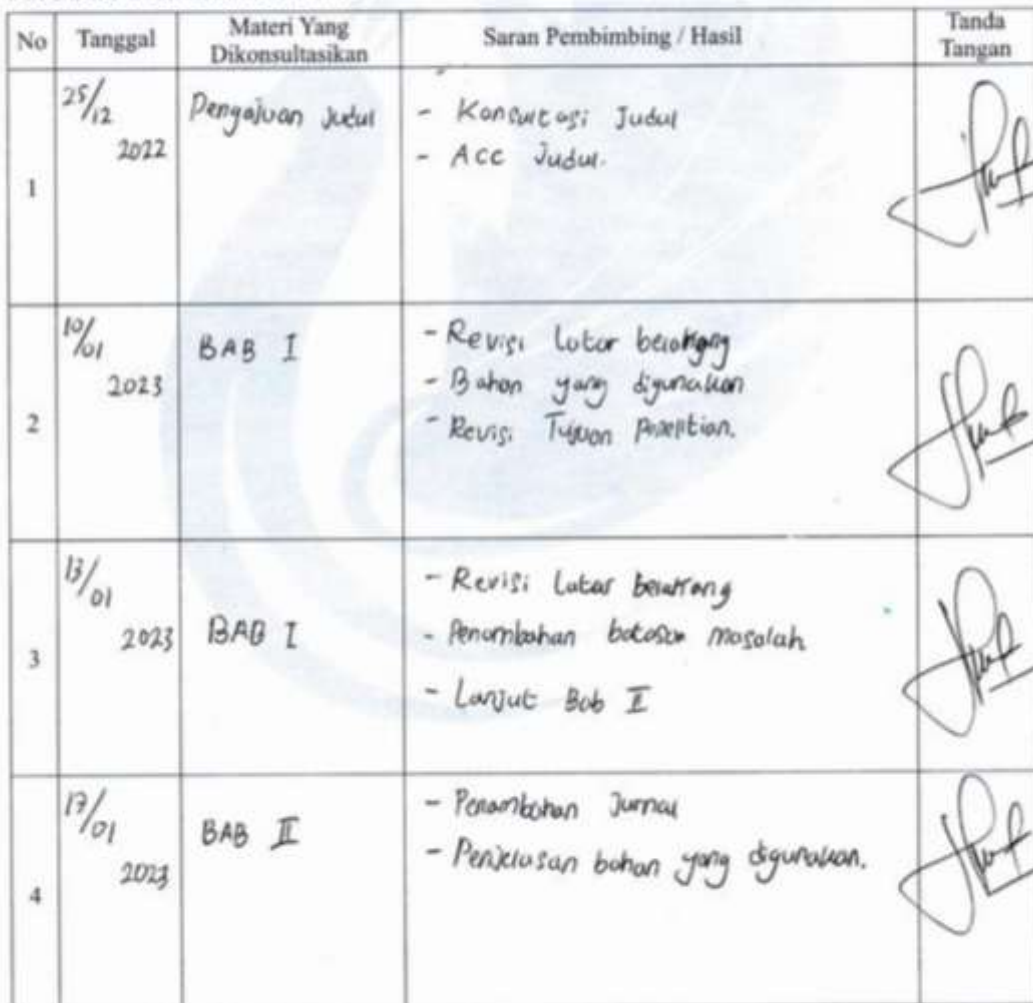 No Tanggal Materi Yang Dikonsultasikan Saran Pembimbing / Hasil Tanda Tangan
1 25/12 2022 Pengajuan Judul - Konsultasi Judul
- Acc Judul.
2 10/01 2023 BAB I - Revisi latar belakang
- Bahan yang digunakan
- Revisi Tujuan penelitian.
3 13/01 2023 BAB I - Revisi Latar belakang
- Penambahan batasan masalah
- Lanjut Bab II
4 17/01 2023 BAB II - Penambahan Jurnal
- Penjelasan bahan yang digunakan.